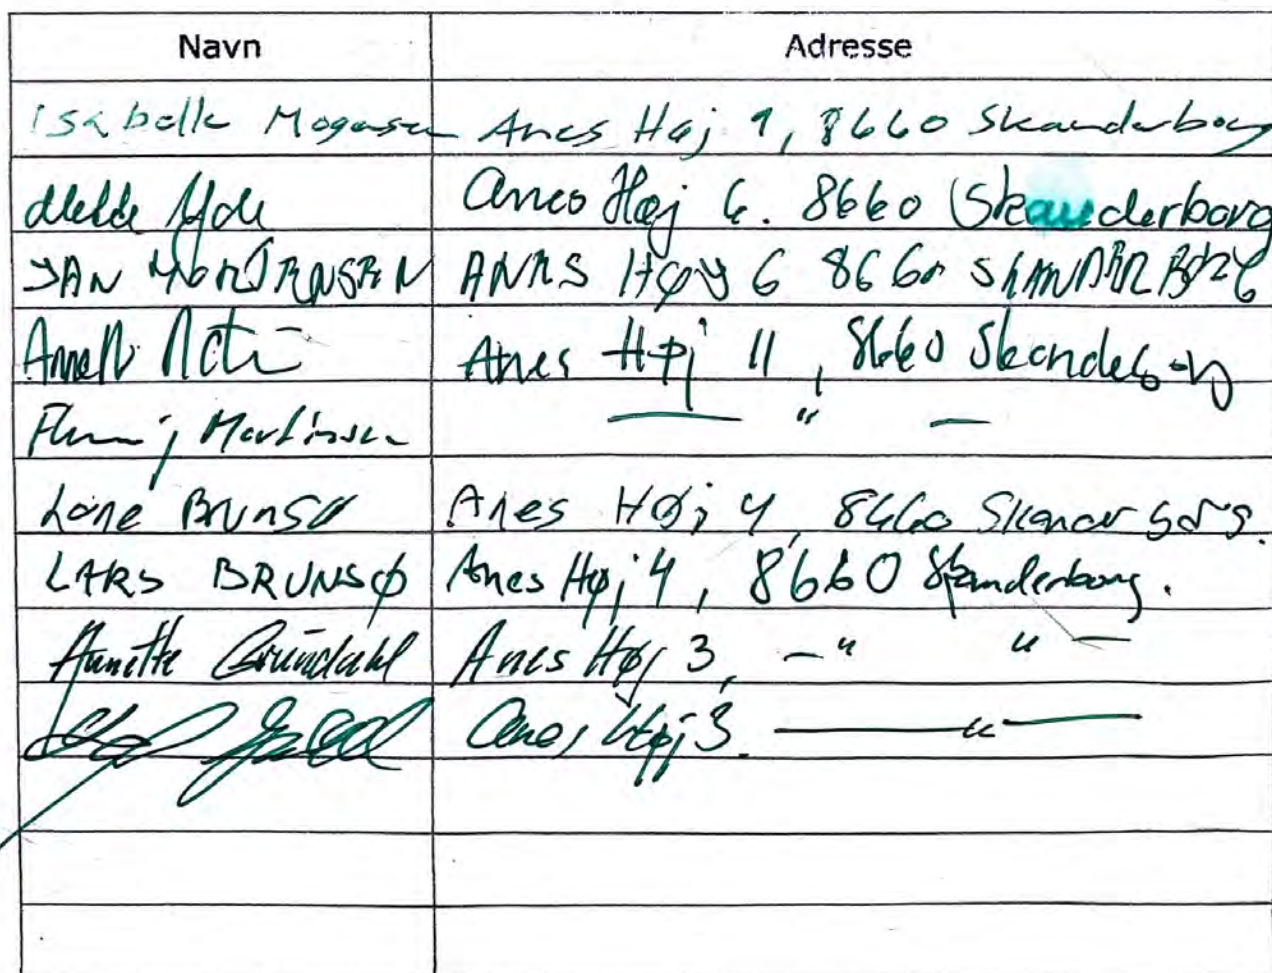 Navn Adresse
Isabelle Mogensen Anes Høj 1, 8660 Skanderborg
Anes Høj 6. 8660 Skanderborg
JAN MORTENSEN ANES HØJ 6 8660 SKANDERBORG
Anes Høj 11, 8660 Skanderborg
Martinsen — " —
Lone Brunsø Anes Høj 4, 8660 Skanderborg.
LARS BRUNSØ Anes Høj 4, 8660 Skanderborg.
Annette Grundahl Anes Høj 3, — " " —
Anes Høj 3. — " —